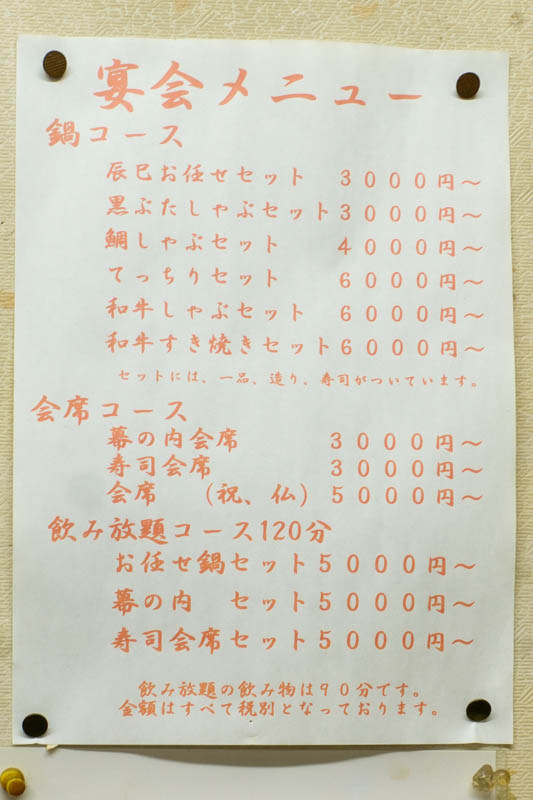 宴会メニュー
鍋コース
辰巳お任せセット ３０００円～
黒ぶたしゃぶセット３０００円～
鯛しゃぶセット ４０００円～
てっちりセット ６０００円～
和牛しゃぶセット ６０００円～
和牛すき焼きセット６０００円～
セットには、一品、造り、寿司がついています。
会席コース
幕の内会席 ３０００円～
寿司会席 ３０００円～
会席 （祝、仏）５０００円～
飲み放題コース120分
お任せ鍋セット５０００円～
幕の内 セット５０００円～
寿司会席セット５０００円～
飲み放題の飲み物は９０分です。
金額はすべて税別となっております。